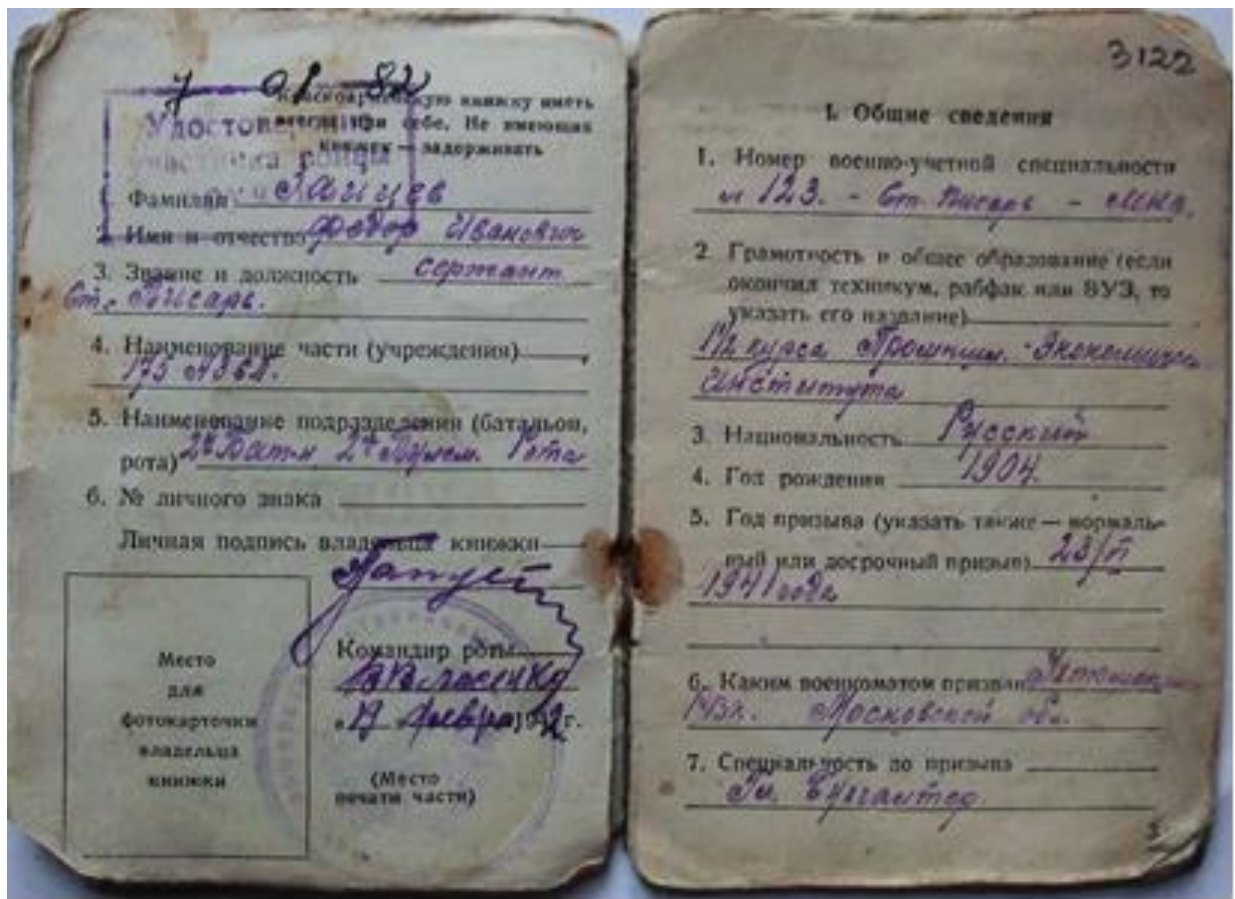 7 01 82
Красноармейскую книжку иметь
Удостоверение
всегда при себе. Не имеющих
участника войны
книжек — задерживать
Фамилия
2. Имя и отчество Федор Иванович
3. Звание и должность сержант
Ст. Писарь.
4. Наименование части (учреждения)
175
5. Наименование подразделения (батальон,
рота) 2й Бат-н 2я Пулем. Рота
6. № личного знака
Личная подпись владельца книжки
Место
для
фотокарточки
владельца
книжки
Командир роты
Власенко
„19 февра 1942 г.
(Место
печати части)
3122
I. Общие сведения
1. Номер военно-учетной специальности
123. - Ст. Писарь -
2. Грамотность и общее образование (если
окончил техникум, рабфак или ВУЗ, то
указать его название)
курса Экономич.
Института
3. Национальность Русский
4. Год рождения 1904.
5. Год призыва (указать также — нормаль-
ный или досрочный призыв) 23/
1941 года
6. Каким военкоматом призван
Московской обл.
7. Специальность до призыва
Гл. Бухгалтер
3